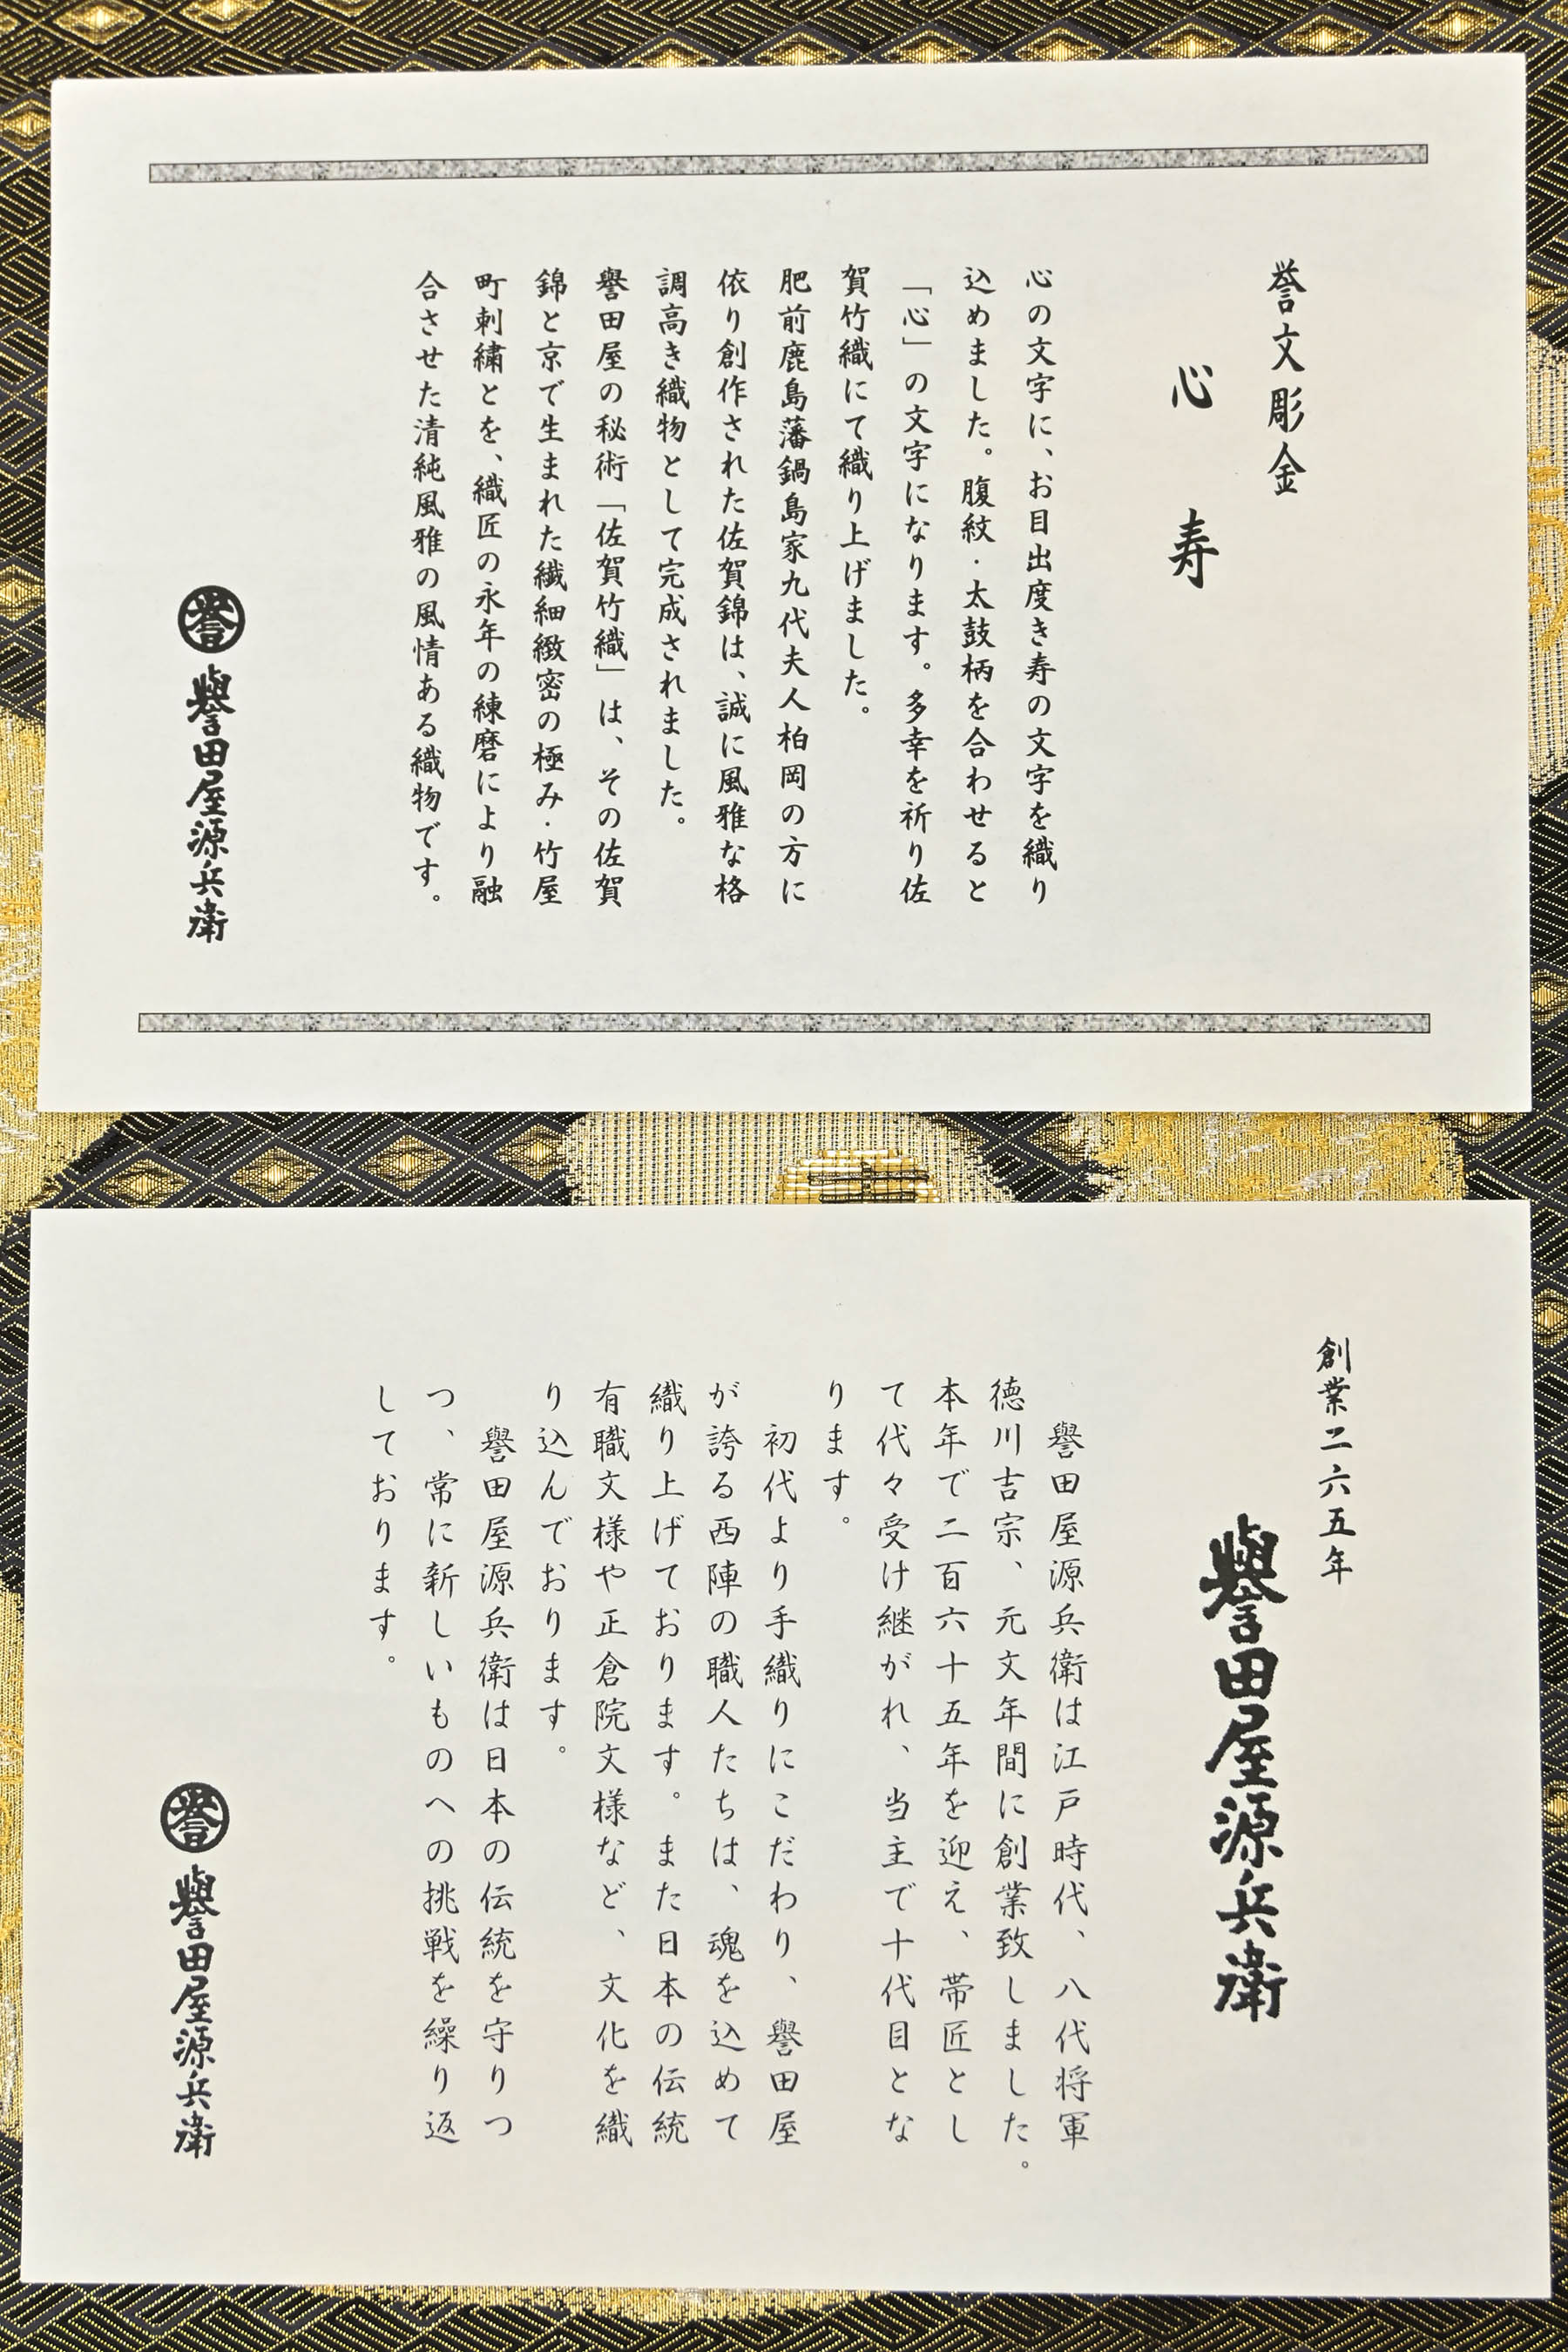 誉文彫金
心　寿
心の文字に、お目出度き寿の文字を織り
込めました。腹紋・太鼓柄を合わせると
「心」の文字になります。多幸を祈り佐
賀竹織にて織り上げました。
肥前鹿島藩鍋島家九代夫人柏岡の方に
依り創作された佐賀錦は、誠に風雅な格
調高き織物として完成されました。
譽田屋の秘術「佐賀竹織」は、その佐賀
錦と京で生まれた繊細緻密の極み・竹屋
町刺繍とを、織匠の永年の練磨により融
合させた清純風雅の風情ある織物です。
誉 譽田屋源兵衛
創業二六五年
譽田屋源兵衛
譽田屋源兵衛は江戸時代、八代将軍
徳川吉宗、元文年間に創業致しました。
本年で二百六十五年を迎え、帯匠とし
て代々受け継がれ、当主で十代目とな
ります。
初代より手織りにこだわり、譽田屋
が誇る西陣の職人たちは、魂を込めて
織り上げております。また日本の伝統
有職文様や正倉院文様など、文化を織
り込んでおります。
譽田屋源兵衛は日本の伝統を守りつ
つ、常に新しいものへの挑戦を繰り返
しております。
誉 譽田屋源兵衛